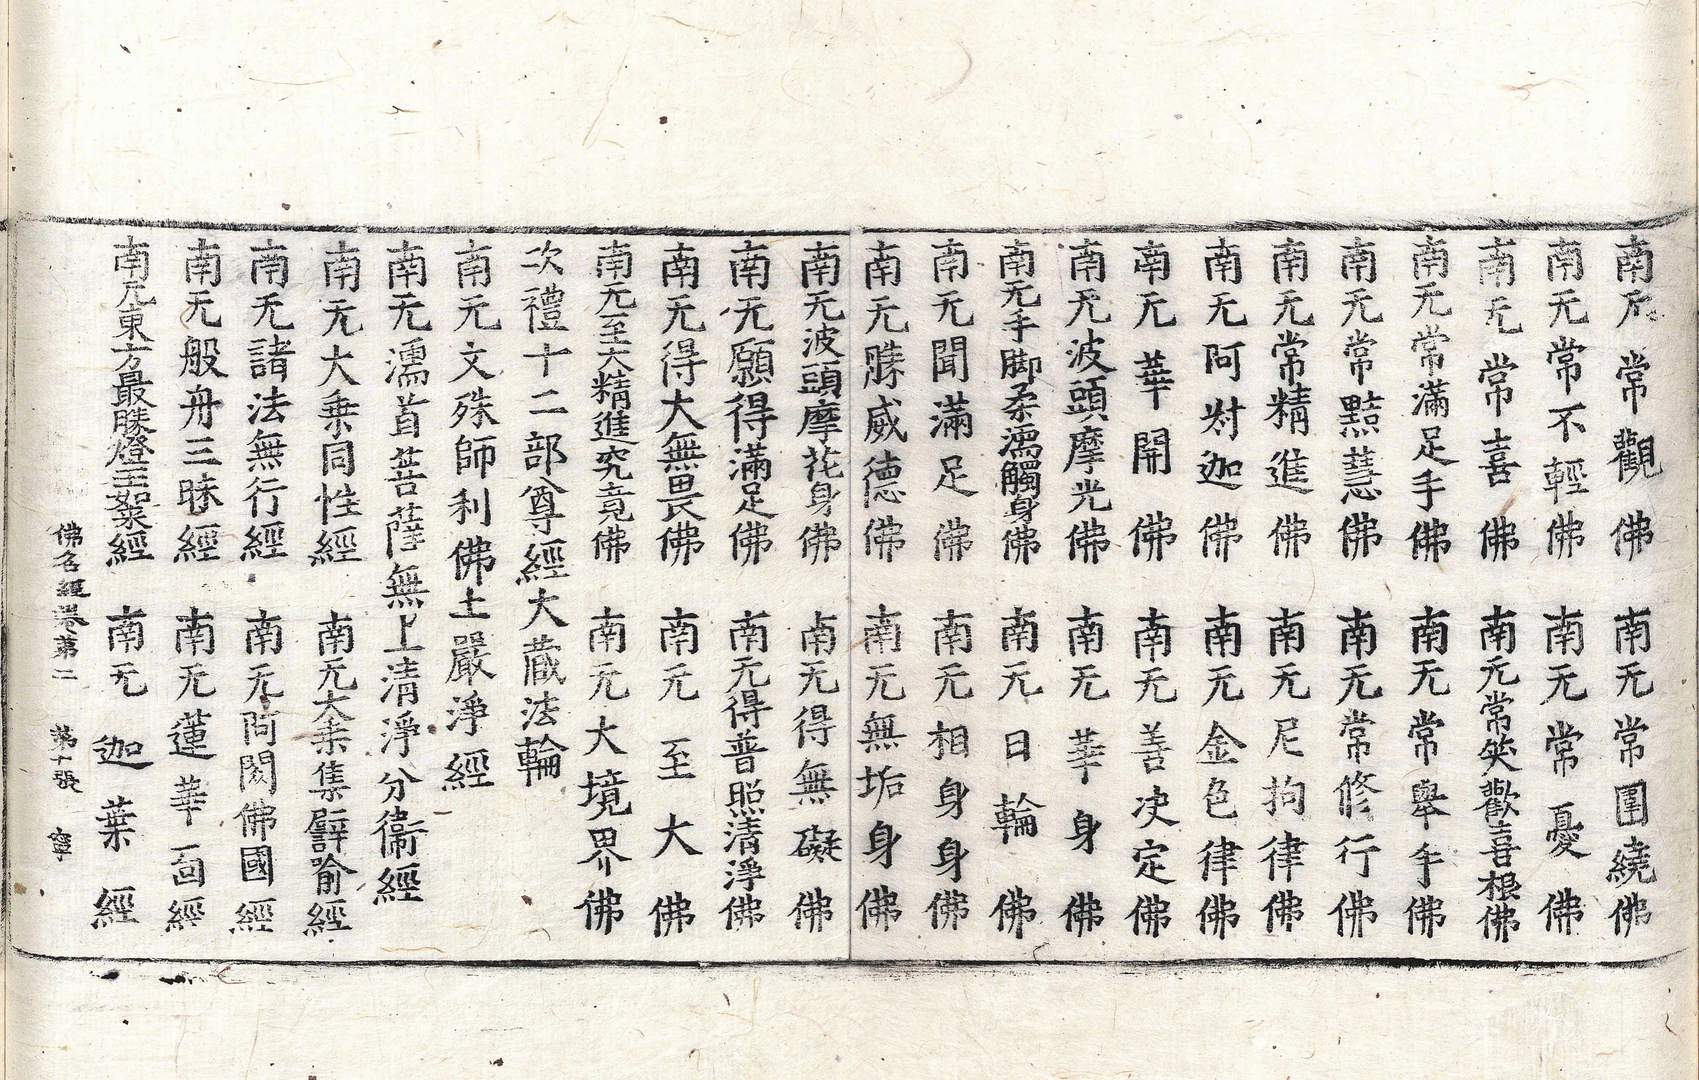 南无常觀佛　南无常圍繞佛
南无常不輕佛　南无常憂佛
南无常喜佛　南无常笑歡喜根佛
南无常滿足手佛　南无常舉手佛
南无常黠慧佛　南无常修行佛
南无常精進佛　南无尼拘律佛
南无阿尌迦佛　南无金色律佛
南无華開佛　南无善决定佛
南无波頭摩光佛　南无華身佛
南无手脚柔濡觸身佛　南无日輪佛
南无聞滿足佛　南无相身身佛
南无勝威德佛　南无無垢身佛
南无波頭摩花身佛　南无得無礙佛
南无願得滿足佛　南无得普照清淨佛
南无得大無畏佛　南无至大佛
南无至大精進究竟佛　南无大境界佛
次禮十二部尊經大藏法輪
南无文殊師利佛土嚴淨經
南无濡首菩薩無上清淨分衞經
南无大乗同性經　南无大乗集譬喻經
南无諸法無行經　南无阿閦佛國經
南无般舟三昧經　南无蓮華面經
南无東方最勝燈王如來經　南无迦葉經
佛名經卷第二　第十張　寧